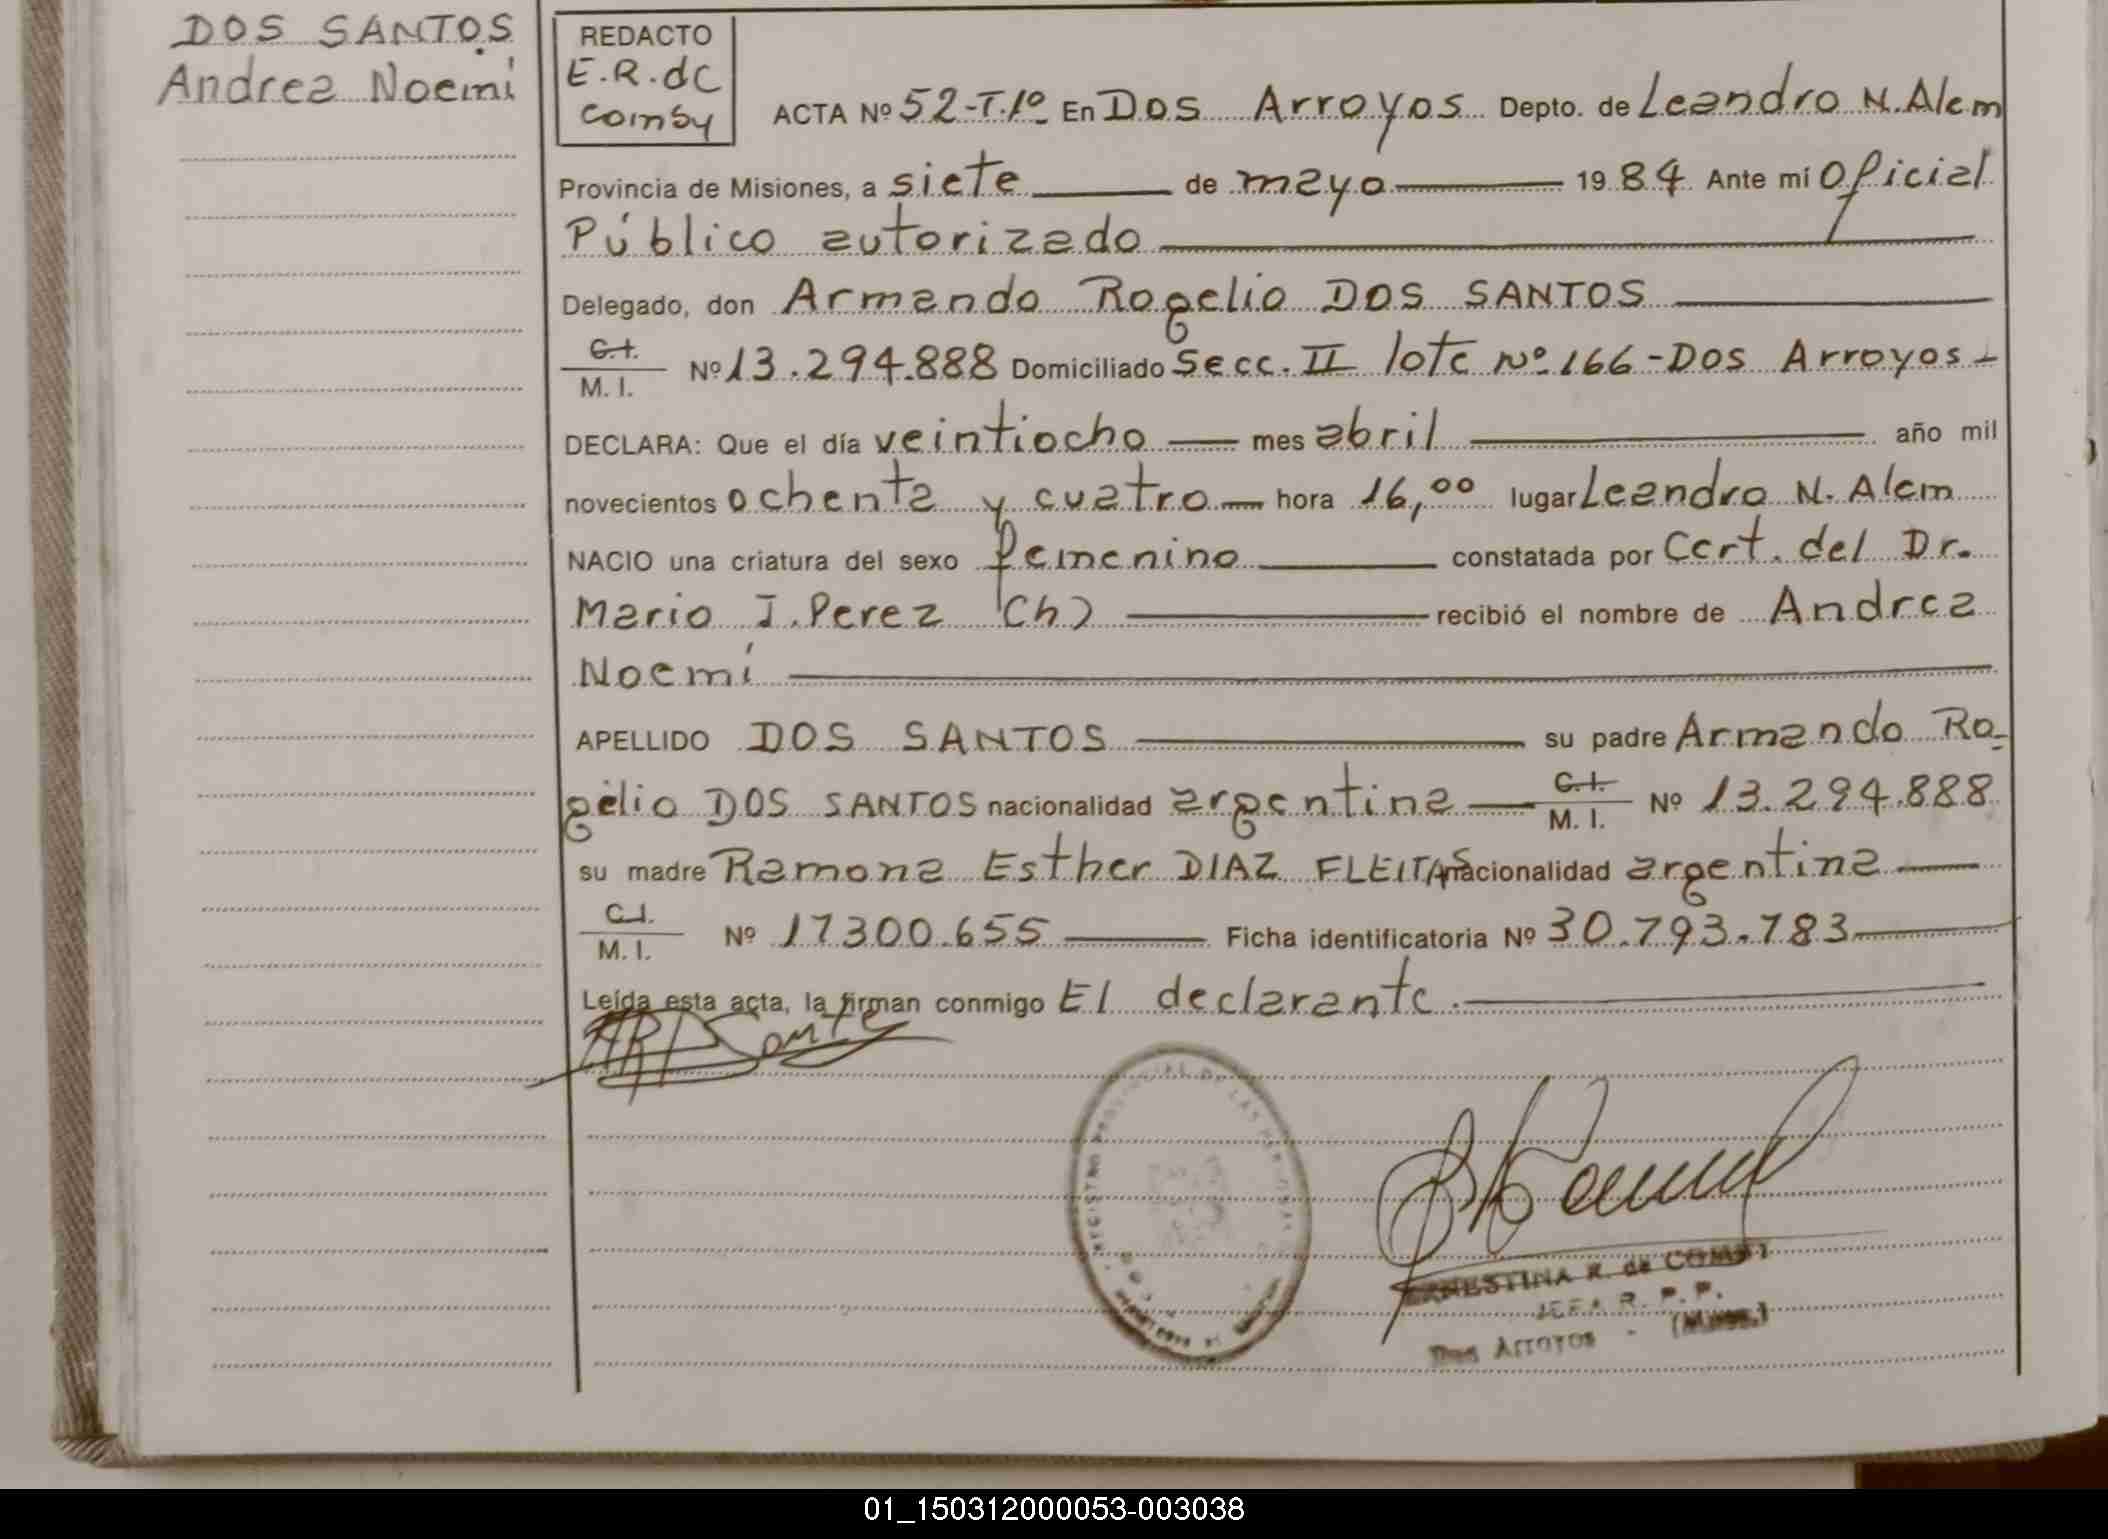 DOS SANTOS
Andrea Noemí
REDACTO
E.R.de
Comby
ACTA Nº 52-T.1º En Dos Arroyos Depto. de Leandro N. Alem
Provincia de Misiones, a siete de mayo 1984 Ante mí Oficial
Público autorizado
Delegado, don Armando Rogelio DOS SANTOS
C.I.
M. I. Nº 13.294.888 Domiciliado Secc. II lote Nº 166-Dos Arroyos-
DECLARA: Que el día veintiocho mes abril año mil
novecientos ochenta y cuatro hora 16,00 lugar Leandro N. Alem
NACIO una criatura del sexo femenino constatada por Cert. del Dr.
Mario J. Perez (h) recibió el nombre de Andrea
Noemí
APELLIDO DOS SANTOS su padre Armando Ro-
gelio DOS SANTOS nacionalidad argentina C.I.
M. I. Nº 13.294.888
su madre Ramona Esther DIAZ FLEITAS nacionalidad argentina
C.I.
M. I. Nº 17300.655 Ficha identificatoria Nº 30.793.783
Leída esta acta, la firman conmigo El declarante.
REGISTRO PROVINCIAL DE LAS PERSONAS
ERNESTINA R. de COMBY
JEFA R. P. P.
Dos Arroyos - (Mnes.)
01_150312000053-003038